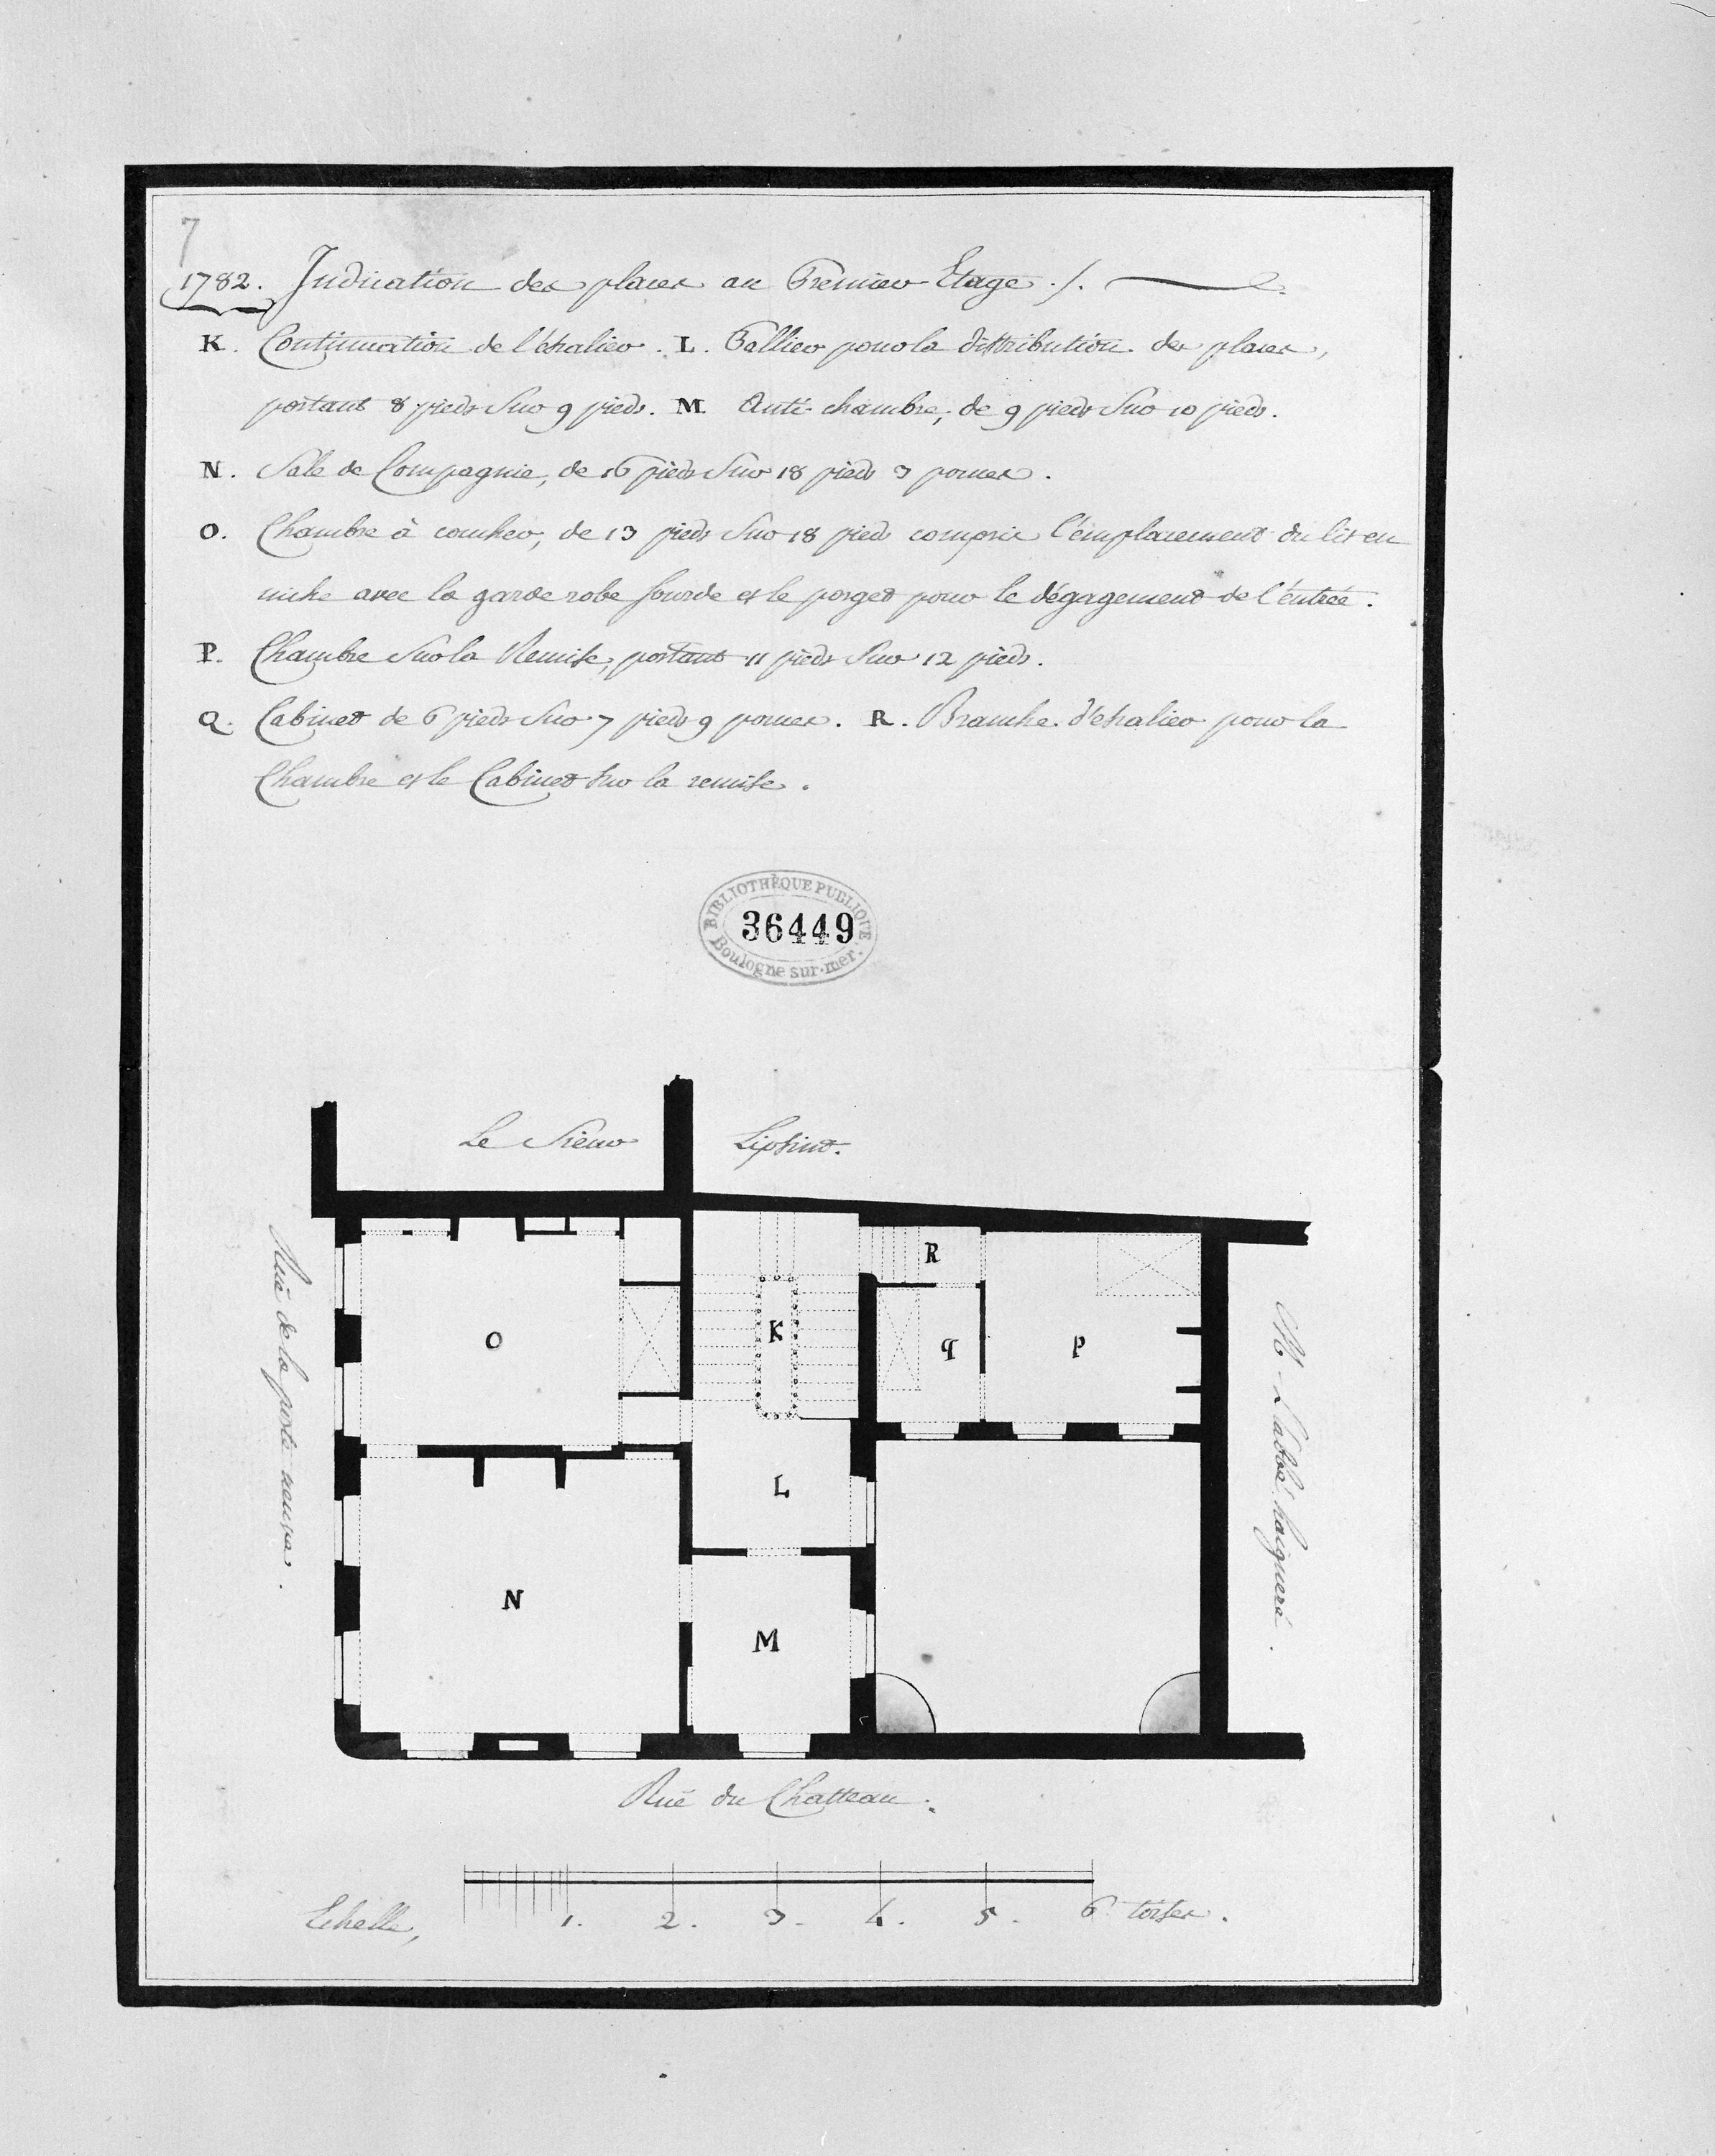 7
1782. Indication des places au Premier Etage ./.
K. Continuation de l'éscalier. L. Pallier pour la distribution des places,
portant 8 pieds Sur 9 pieds. M. Anti-chambre, de 9 pieds Sur 10 pieds.
N. Sale de Compagnie, de 16 pieds Sur 18 pieds 3 pouces.
O. Chambre à coucher, de 13 pieds Sur 18 pieds compris l'emplacement du lit en
niche avec la garde robe sourde et le porget pour le dégagement de l'éntrée.
P. Chambre Sur la Remise, portant 11 pieds Sur 12 pieds.
Q. Cabinet de 6 pieds Sur 7 pieds 9 pouces. R. Branche d'escalier pour la
Chambre et le Cabinet sur la remise.
BIBLIOTHÈQUE PUBLIQUE
36449
Boulogne sur-mer.
Le Sieur Lipsint.
R
O
K
q
P
L
N
M
Rue de la porte neuve.
Mr. L'abbé haigneré.
Rue du Chatteau.
Echelle, 1. 2. 3. 4. 5. 6 toises.